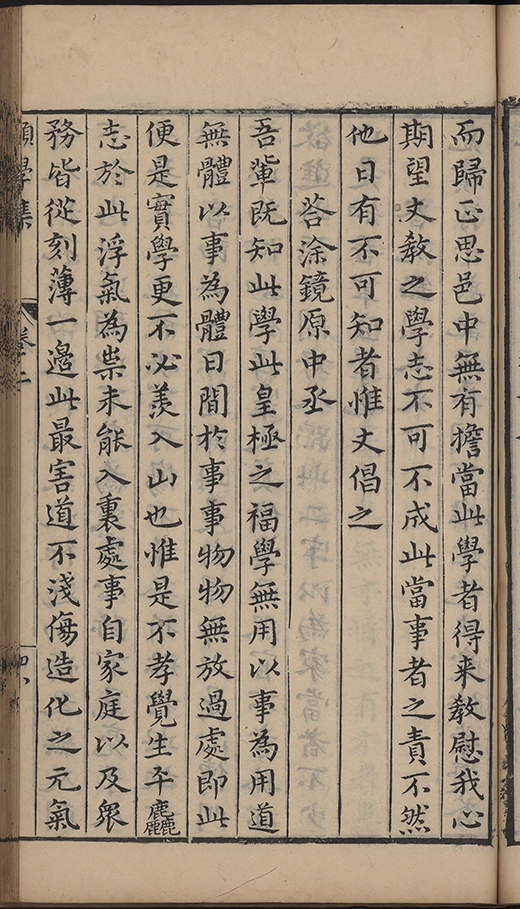 而歸正思邑中無有擔當此學者得来教慰我心
期望丈教之學志不可不成此當事者之責不然
他日有不可知者惟丈倡之
荅涂鏡原中丞
吾輩既知此學此皇極之福學無用以事為用道
無體以事為體日間於事事物物無放過處即此
便是實學更不必羨入山也惟是不孝覺生平麤
志於此浮氣為祟未能入裏處事自家庭以及衆
務皆從刻薄一邊此最害道不淺傷造化之元氣
學集
卷二